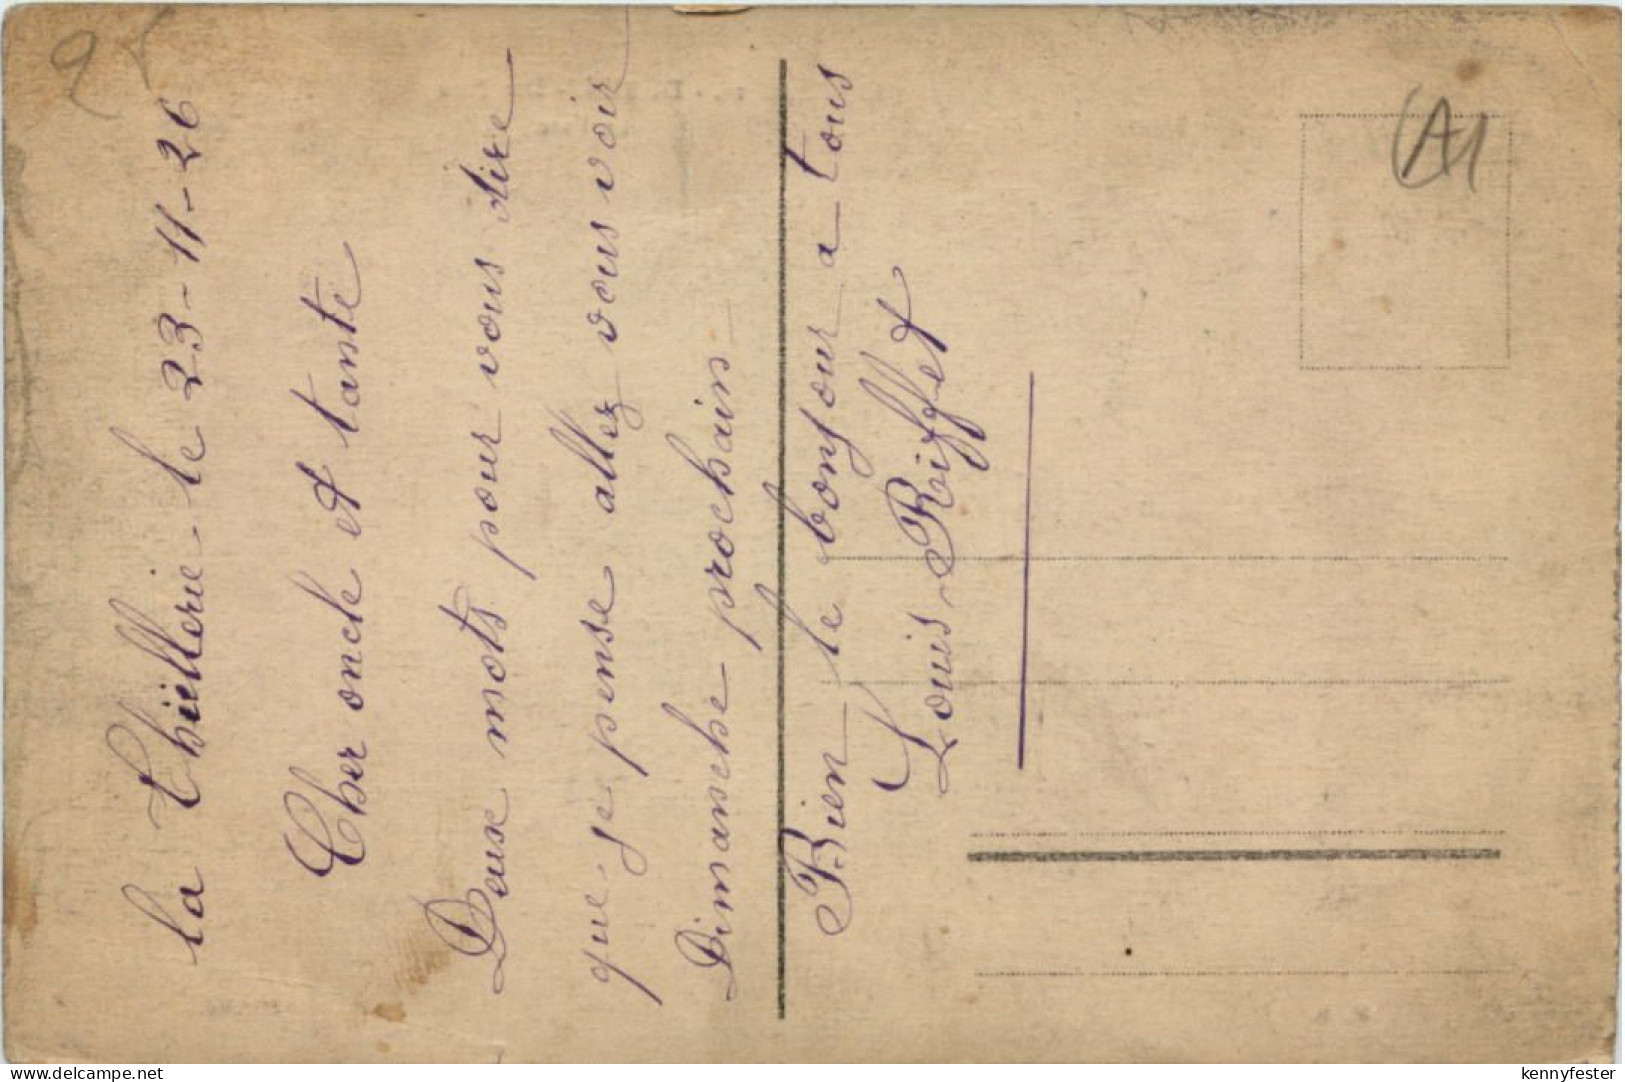 la Thiellerie le 23-11-26
Cher oncle et tante
Deux mots pour vous dire
que je pense allez vous voir
Dimanche prochain
Bien le bonjour a tous
Louis Reiffet
A1
www.delcampe.net
kennyfester